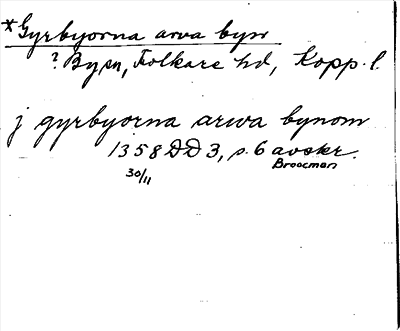 *Gyrbyorna arva byn
? Byn, Folkare hd, Kopp. l.
j gyrbyorna arwa bynom
1358 DD 3, s. 6 avskr.
Broocman
30/11